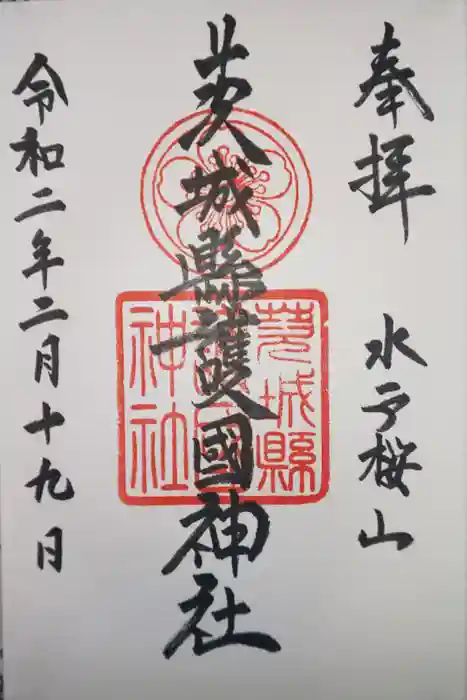 奉拝 水戸桜山
茨城縣護國神社
茨城縣護國神社
令和二年二月十九日